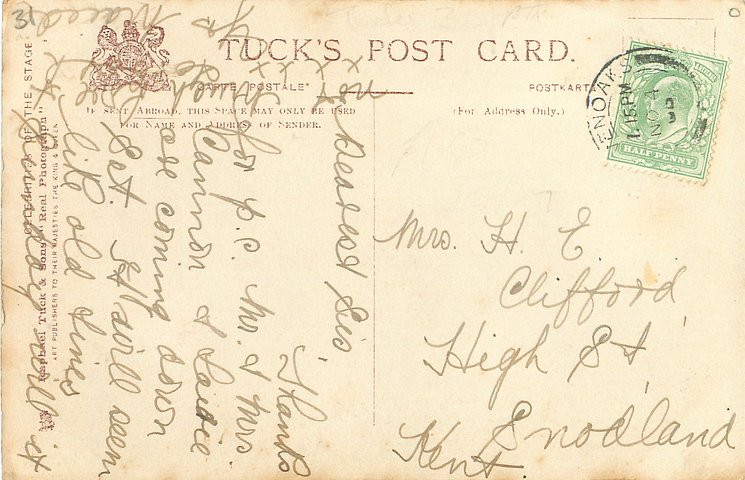 31
TUCK'S POST CARD.
CARTE POSTALE
POSTKARTE
IF SENT ABROAD, THIS SPACE MAY ONLY BE USED
FOR NAME AND ADDRESS OF SENDER.
(For Address Only.)
CELEBRITIES OF THE STAGE.
Raphael Tuck & Sons' "Real Photograph"
ART PUBLISHERS TO THEIR MAJESTIES THE KING & QUEEN
HALF PENNY
ENOAKS
1.15 PM
NO 4
Dearest Sis
Thanks
for p.c. Mr & Mrs
Cannon &
are coming down
Sat. It will seem
like old times
Mrs. H. E.
Clifford
High St,
Snodland
Kent.